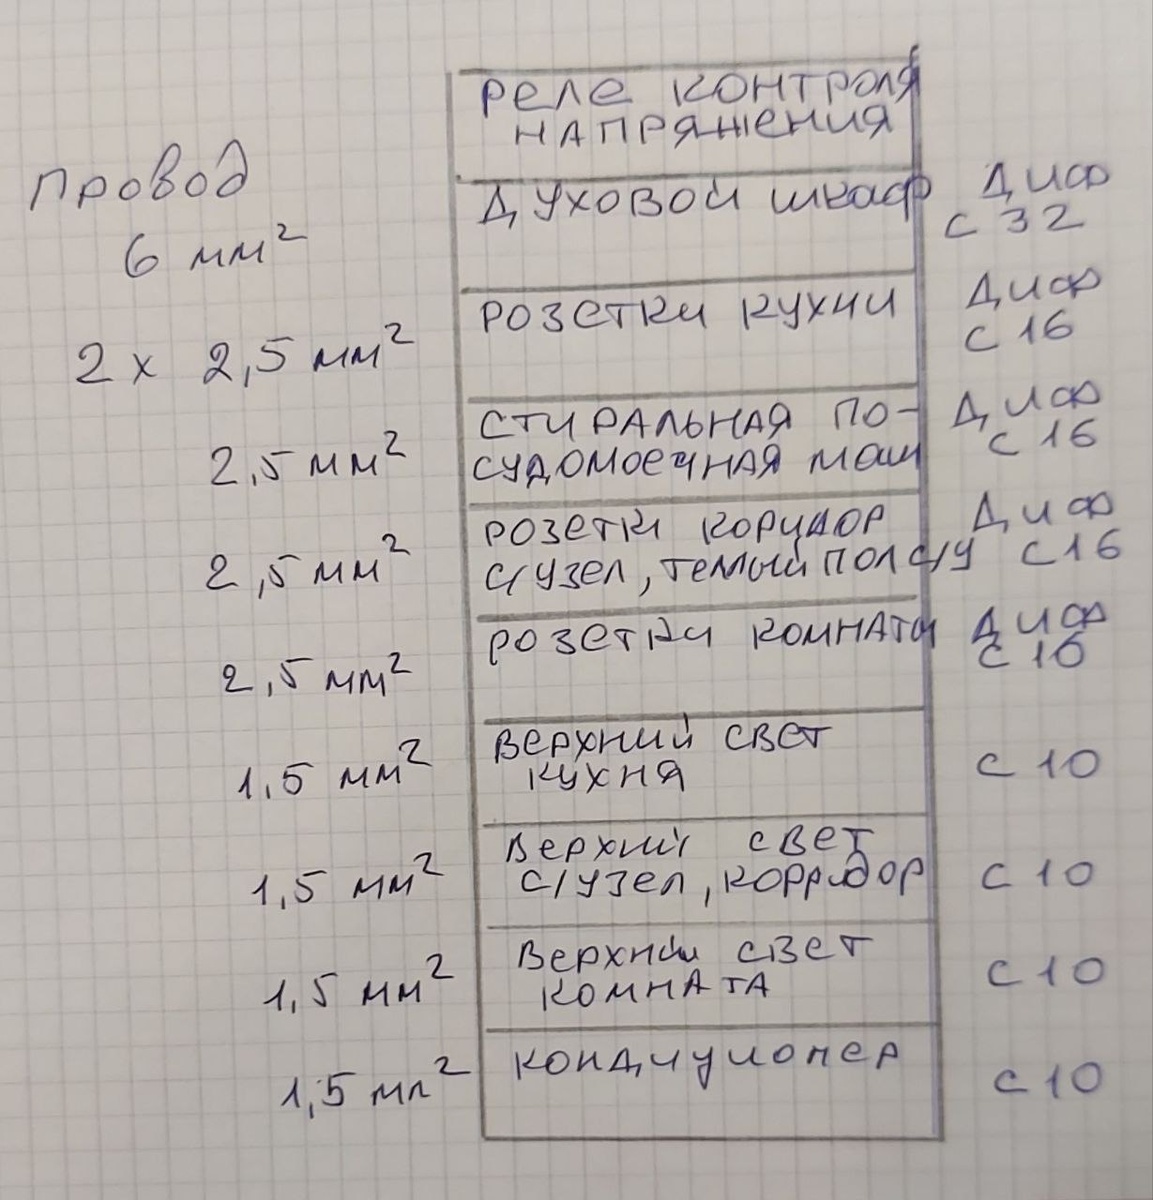 реле контроля
напряжения
Провод
6 мм²
духовой шкаф
Диф
С 32
2 х 2,5 мм²
розетки кухни
Диф
С 16
2,5 мм²
стиральная по-
судомоечная маш
Диф
С 16
2,5 мм²
розетки коридор
с/узел, теплый пол с/у
Диф
С16
2,5 мм²
розетки комната
Диф
С 16
1,5 мм²
верхний свет
кухня
С 10
1,5 мм²
Верхний свет
с/узел, корридор
С 10
1,5 мм²
Верхний свет
комната
С 10
1,5 мм²
кондиционер
С 10